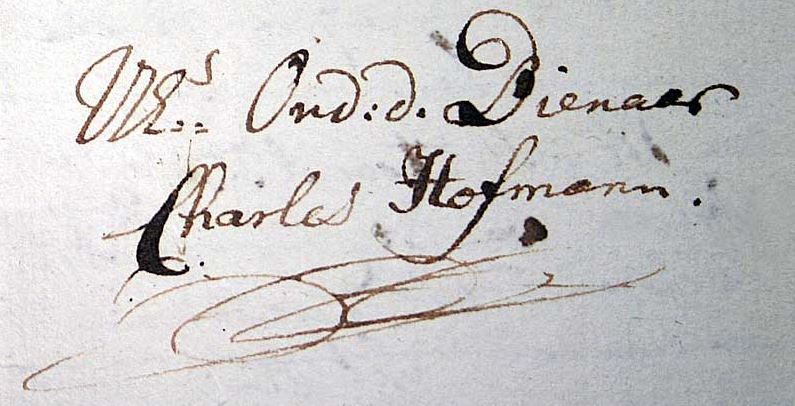 Ond:d. Dienaer
Charles Hofmann.